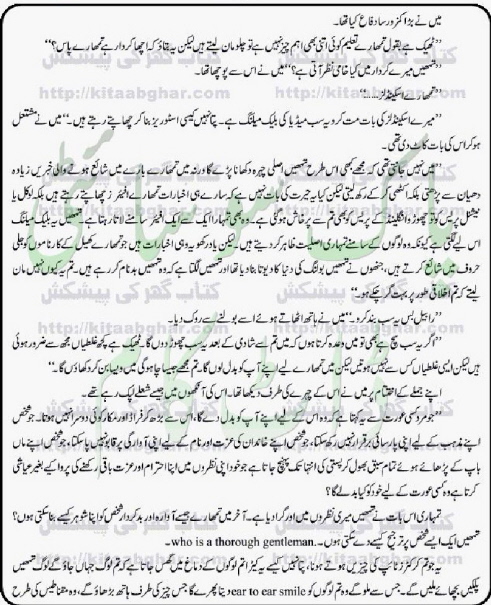 میں نے بڑا کمزور سا دفاع کیا تھا۔
’’ٹھیک ہے بقول تمہارے تعلیم کوئی اتنی بھی اہم چیز نہیں ہے تو چلو مان لیتے ہیں لیکن یہ بتاؤ کہ اچھا کردار ہے تمہارے پاس؟‘‘
’’تمہیں میرے کردار میں کیا خامی نظر آتی ہے؟‘‘ میں نے اس سے پوچھا تھا۔
’’تمہارے اسکینڈلز......‘‘
’’میرے اسکینڈلز کی بات مت کرو یہ سب میڈیا کی بلیک میلنگ ہے۔ پتا نہیں کیسی اسٹوریز بنا کر چھاپتے رہتے ہیں۔‘‘ میں نے مشتعل
ہو کر اس کی بات کاٹ دی تھی۔
’’میں نہیں جانتی تھی کہ مجھے بھی اس طرح تمہیں اصلی چہرہ دکھانا پڑے گا ورنہ میں تمہارے بارے میں شائع ہونے والی خبریں زیادہ
دھیان سے پڑھتی بلکہ اکٹھی کر کے رکھ لیتی لیکن کیا یہ حیرت کی بات نہیں ہے کہ سارے ہی اخبارات تمہارے افیئرز چھاپتے رہتے ہیں بلکہ لوکل یا
نیشنل پریس کو تو چھوڑو انگلینڈ کے پریس کو بھی تم سے پرخاش ہو گئی ہے۔ وہ بھی تمہارا ایک سے ایک افیئر سامنے لاتا رہتا ہے۔ تمہیں یہ بلیک میلنگ
اس لیے لگتی ہے کیونکہ وہ لوگوں کے سامنے تمہاری اصلیت ظاہر کر دیتے ہیں۔ لیکن یاد رکھو یہ وہی اخبارات ہیں جو تمہارے کھیل کے کارناموں کو جلی
حروف میں شائع کرتے ہیں، جنہوں نے تمہیں بولنگ کی دنیا کا دیوتا بنا دیا تھا اور تمہیں لگتا ہے کہ وہ تمہیں بدنام کر رہے ہیں۔ تم یہ کیوں نہیں مان
لیتے کہ تم اخلاقی طور پر پست ہو چکے ہو۔‘‘
’’رابیل بس یہ سب بند کرو۔‘‘ میں نے ہاتھ اٹھاتے ہوئے اسے بولنے سے روک دیا۔
’’اگر یہ سب سچ ہے بھی تو میں وعدہ کرتا ہوں کہ میں تم سے شادی کے بعد یہ سب چھوڑ دوں گا۔ ٹھیک ہے کچھ غلطیاں مجھ سے ضرور ہوئی
ہیں لیکن ایسی غلطیاں کس سے نہیں ہوتیں لیکن میں تمہارے لیے اپنے آپ کو بدل لوں گا۔ تم مجھے جیسا چاہو گی میں ویسا بن کر دکھاؤں گا۔‘‘
اپنے جملے کے اختتام پر میں نے اس کے چہرے کی طرف دیکھا تھا۔ اس کی آنکھوں میں جیسے شعلے لپک رہے تھے۔
’’جو مرد کسی عورت سے یہ کہتا ہے کہ وہ اس کے لیے اپنے آپ کو بدل دے گا، اس سے بڑھ کر فراڈ اور مکار کوئی دوسرا نہیں ہوتا۔ جو شخص
اپنے مذہب کے لیے اپنی پارسائی برقرار نہیں رکھ سکتا، جو شخص اپنے خاندان کی عزت اور نام کے لیے اپنی آوارگی پر قابو نہیں پا سکتا، جو شخص اپنے ماں
باپ کے پڑھائے ہوئے تمام سبق بھول کر پستی کی انتہا تک پہنچ جاتا ہے جو خود اپنی نظروں میں اپنا احترام اور عزت باقی رکھنے کی پروا کیے بغیر عیاشی
کرتا ہے وہ کسی عورت کے لیے خود کو کیا بدلے گا؟
تمہاری اس بات نے تمہیں میری نظروں میں اور گرا دیا ہے۔ آخر میں تمہارے جیسے آوارہ اور بد کردار شخص کو اپنا شوہر کیسے بنا سکتی ہوں؟
تمہیں ایک ایسے شخص پر ترجیح کیسے دے سکتی ہوں۔ who is a thorough gentleman.۔
یہ جو تم کرکٹرز نا کی چیزیں ہوتے ہونا، پتا نہیں کیسے یہ کیڑا تم لوگوں کے دماغ میں گھس جاتا ہے کہ تم لوگ جہاں جاؤ گے لوگ تمہیں
پلکیں بچھائے ملیں گے۔ جس سے ملو گے وہ تم لوگوں کو ear to ear smile دیتا پھرے گا جس چیز کی طرف ہاتھ بڑھاؤ گے، وہ مقناطیس کی طرح